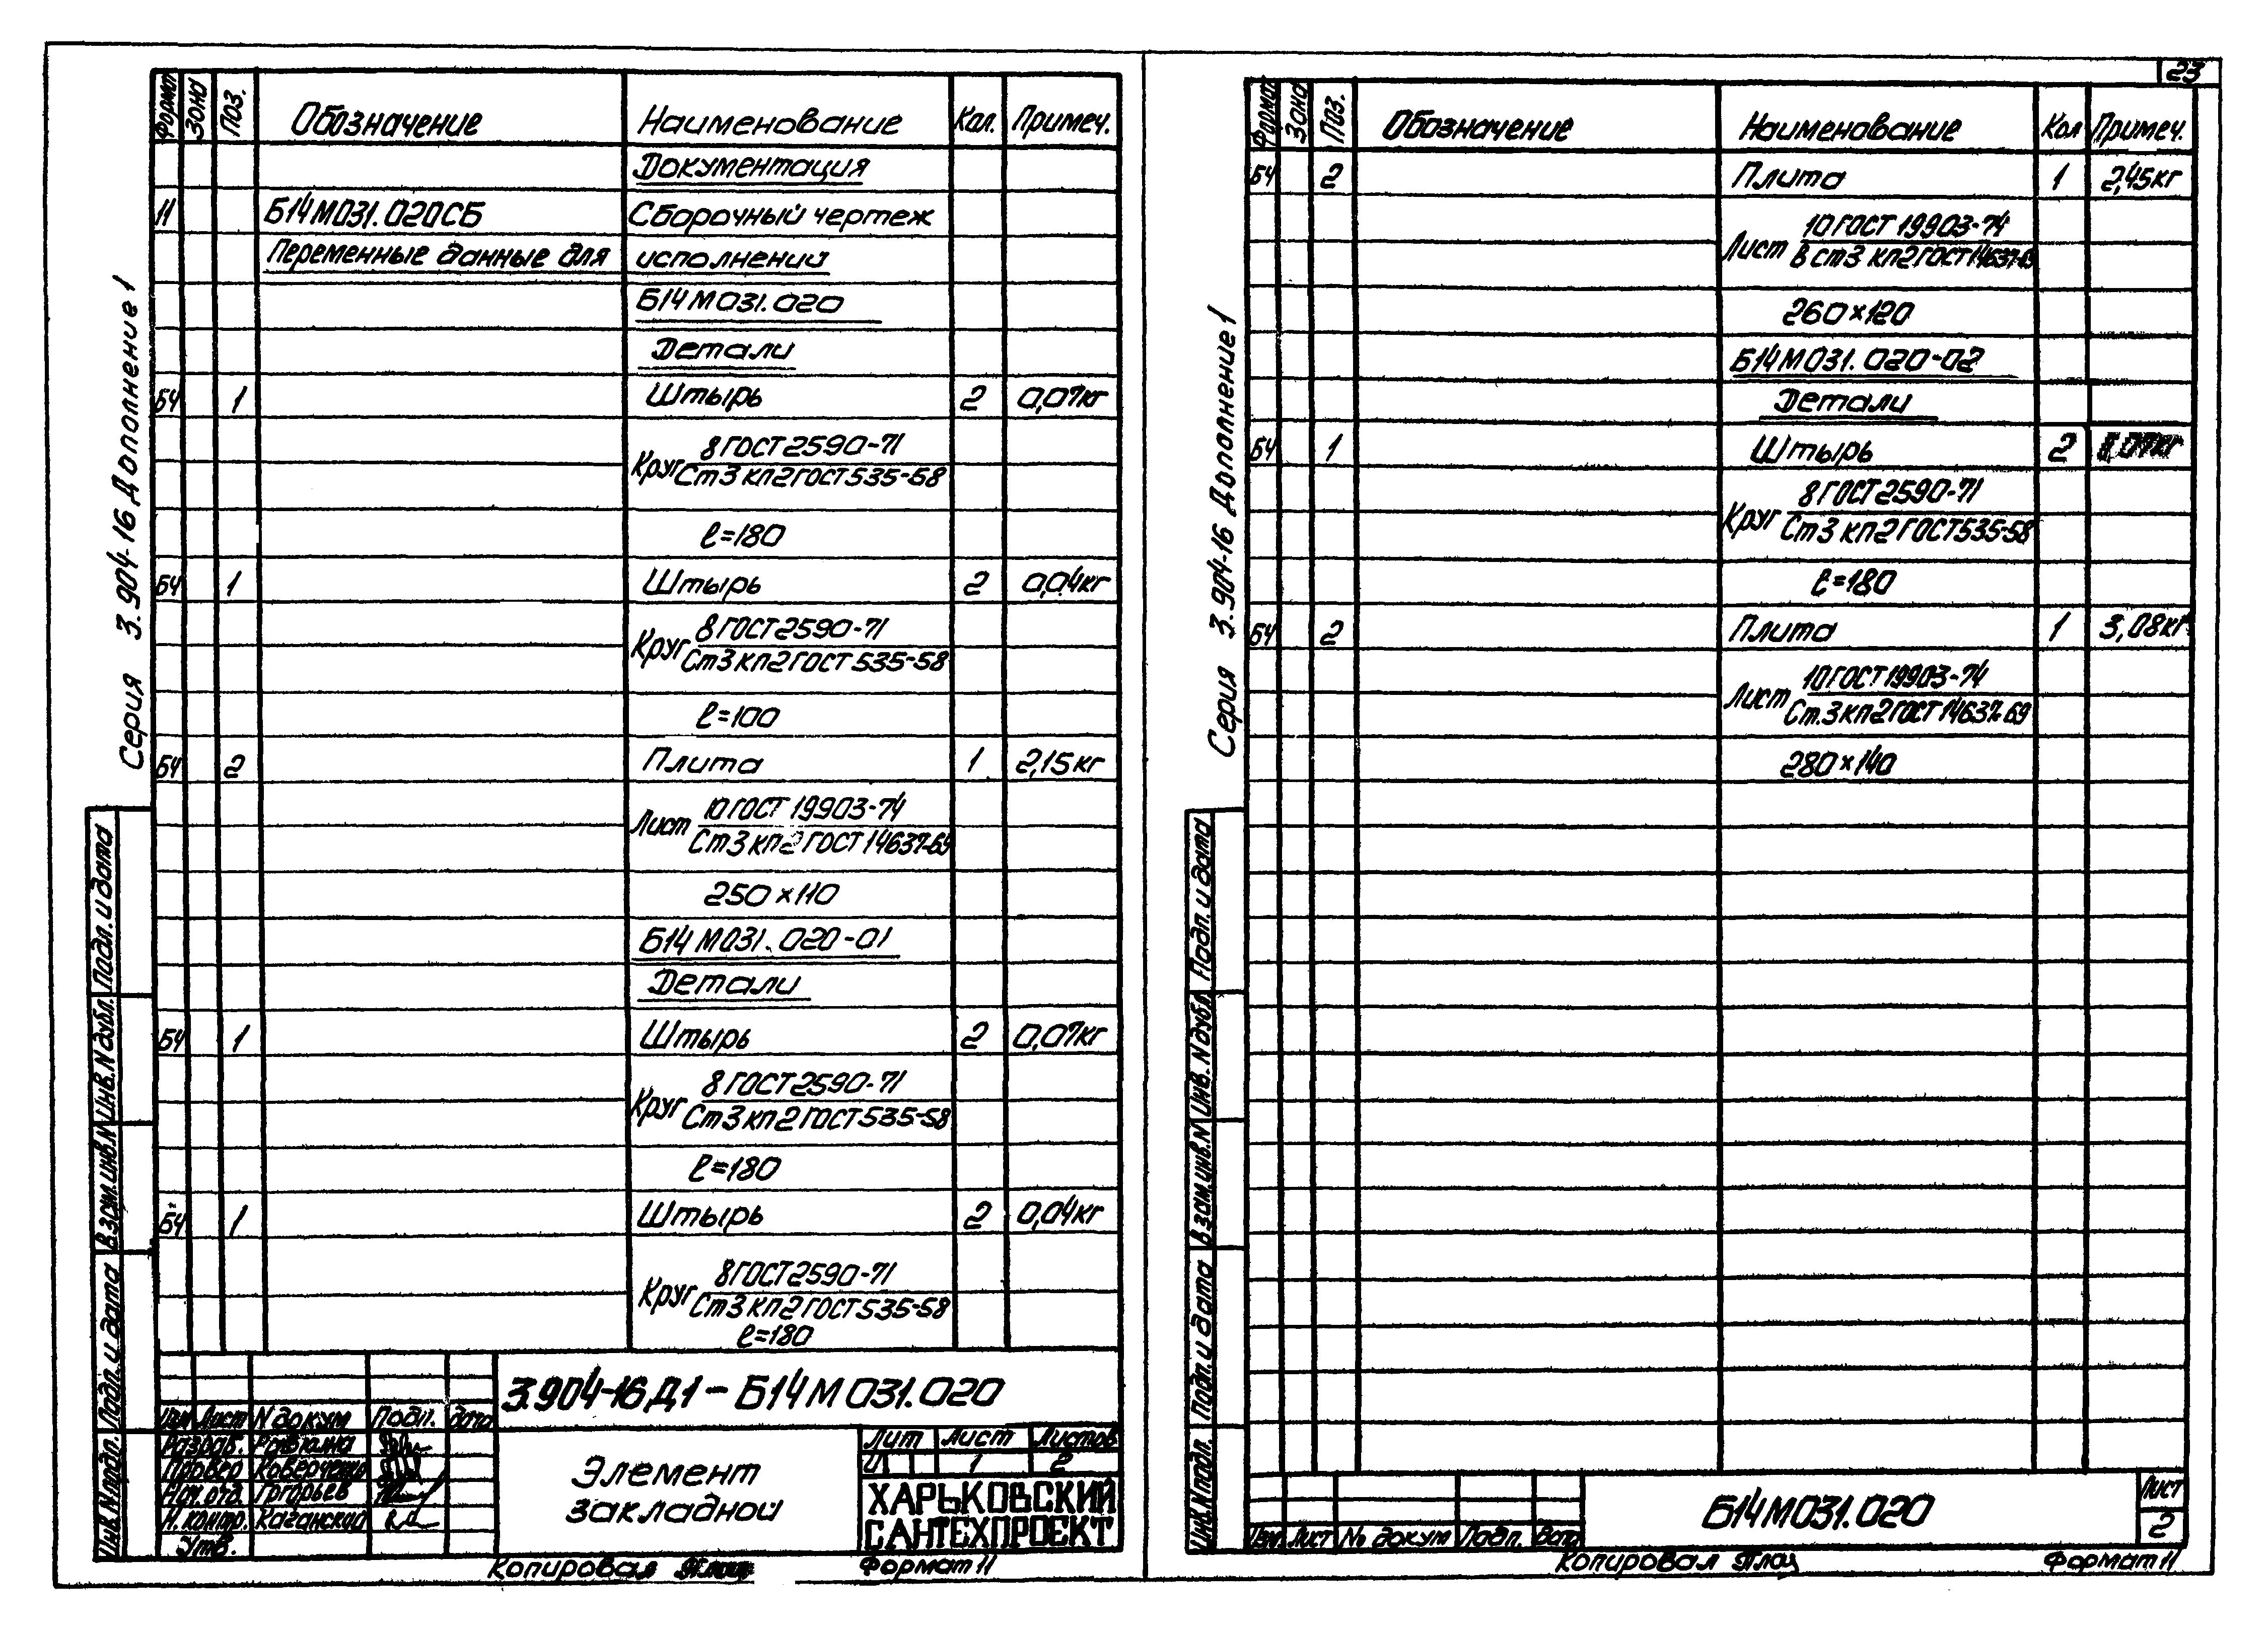 23
Серия 3.904-16 Дополнение 1
Формат Зона Поз. Обозначение Наименование Кол. Примеч.
Документация
11 Б14М031.020СБ Сборочный чертеж
Переменные данные для исполнений
Б14М031.020
Детали
БЧ 1 Штырь 2 0,07кг
8 ГОСТ 2590-71
Круг Ст3 кп2 ГОСТ 535-58
ℓ=180
БЧ 1 Штырь 2 0,04кг
8 ГОСТ 2590-71
Круг Ст3 кп2 ГОСТ 535-58
ℓ=100
БЧ 2 Плита 1 2,15кг
10 ГОСТ 19903-74
Лист Ст3 кп2 ГОСТ 14637-69
250×110
Б14М031.020-01
Детали
БЧ 1 Штырь 2 0,07кг
8 ГОСТ 2590-71
Круг Ст3 кп2 ГОСТ 535-58
ℓ=180
БЧ 1 Штырь 2 0,04кг
8 ГОСТ 2590-71
Круг Ст3 кп2 ГОСТ 535-58
ℓ=180
Подп. и дата
Инв. N дубл.
Взам. инв. N
Подп. и дата
Инв. N подл.
3.904-16 Д1 - Б14М031.020
Изм Лист N докум Подп. дата
Разраб.
Провер
Нач. отд. Григорьев
Н. контр. Каганский
Утв.
Элемент
закладной
Лит Лист Листов
И 1 2
ХАРЬКОВСКИЙ
САНТЕХПРОЕКТ
Копировал
Формат 11
Серия 3.904-16 Дополнение 1
Формат Зона Поз. Обозначение Наименование Кол Примеч.
БЧ 2 Плита 1 2,45кг
10 ГОСТ 19903-74
Лист В ст3 кп2 ГОСТ 14637-69
260×120
Б14М031.020-02
Детали
БЧ 1 Штырь 2
8 ГОСТ 2590-71
Круг Ст3 кп2 ГОСТ 535-58
ℓ=180
БЧ 2 Плита 1 3,08кг
10 ГОСТ 19903-74
Лист Ст.3 кп2 ГОСТ 14637-69
280×140
Подп. и дата
Инв. N дубл.
Взам. инв. N
Подп. и дата
Инв. N подл.
Изм Лист № докум Подп.
Б14М031.020
Лист
2
Копировал
Формат 11